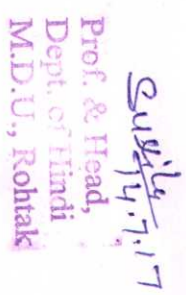 Sushila
14.7.17
Prof. & Head,
Dept. of Hindi
M.D.U., Rohtak